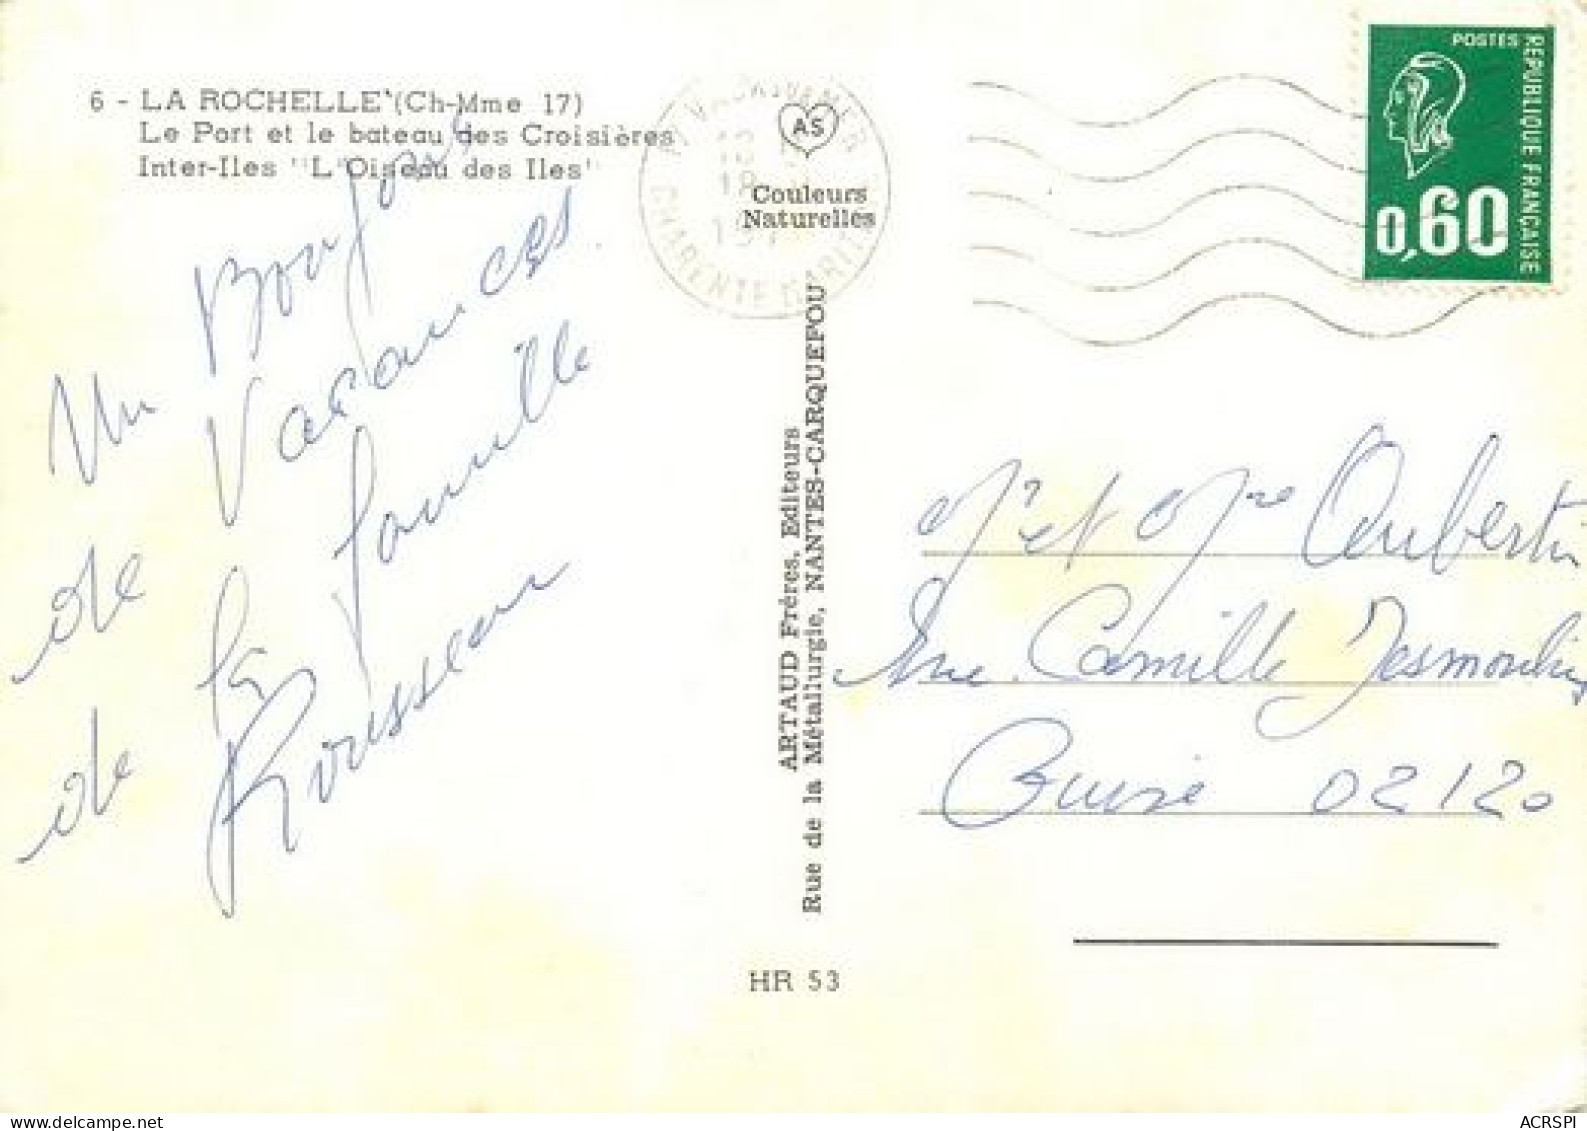 6 - LA ROCHELLE (Ch-Mme 17)
Le Port et le bateau des Croisières
Inter-Iles "L'Oiseau des Iles"
AS
Couleurs
Naturelles
CHARENTE MARITIME
POSTES
REPUBLIQUE FRANÇAISE
0,60
Un Bonjour
de Vacances
de la famille
Rousseau
ARTAUD Frères, Editeurs
Rue de la Métallurgie, NANTES-CARQUEFOU
Mr et Mme Aubertin
rue Camille Desmoulins
Guise 02120
HR 53
ACRSPI